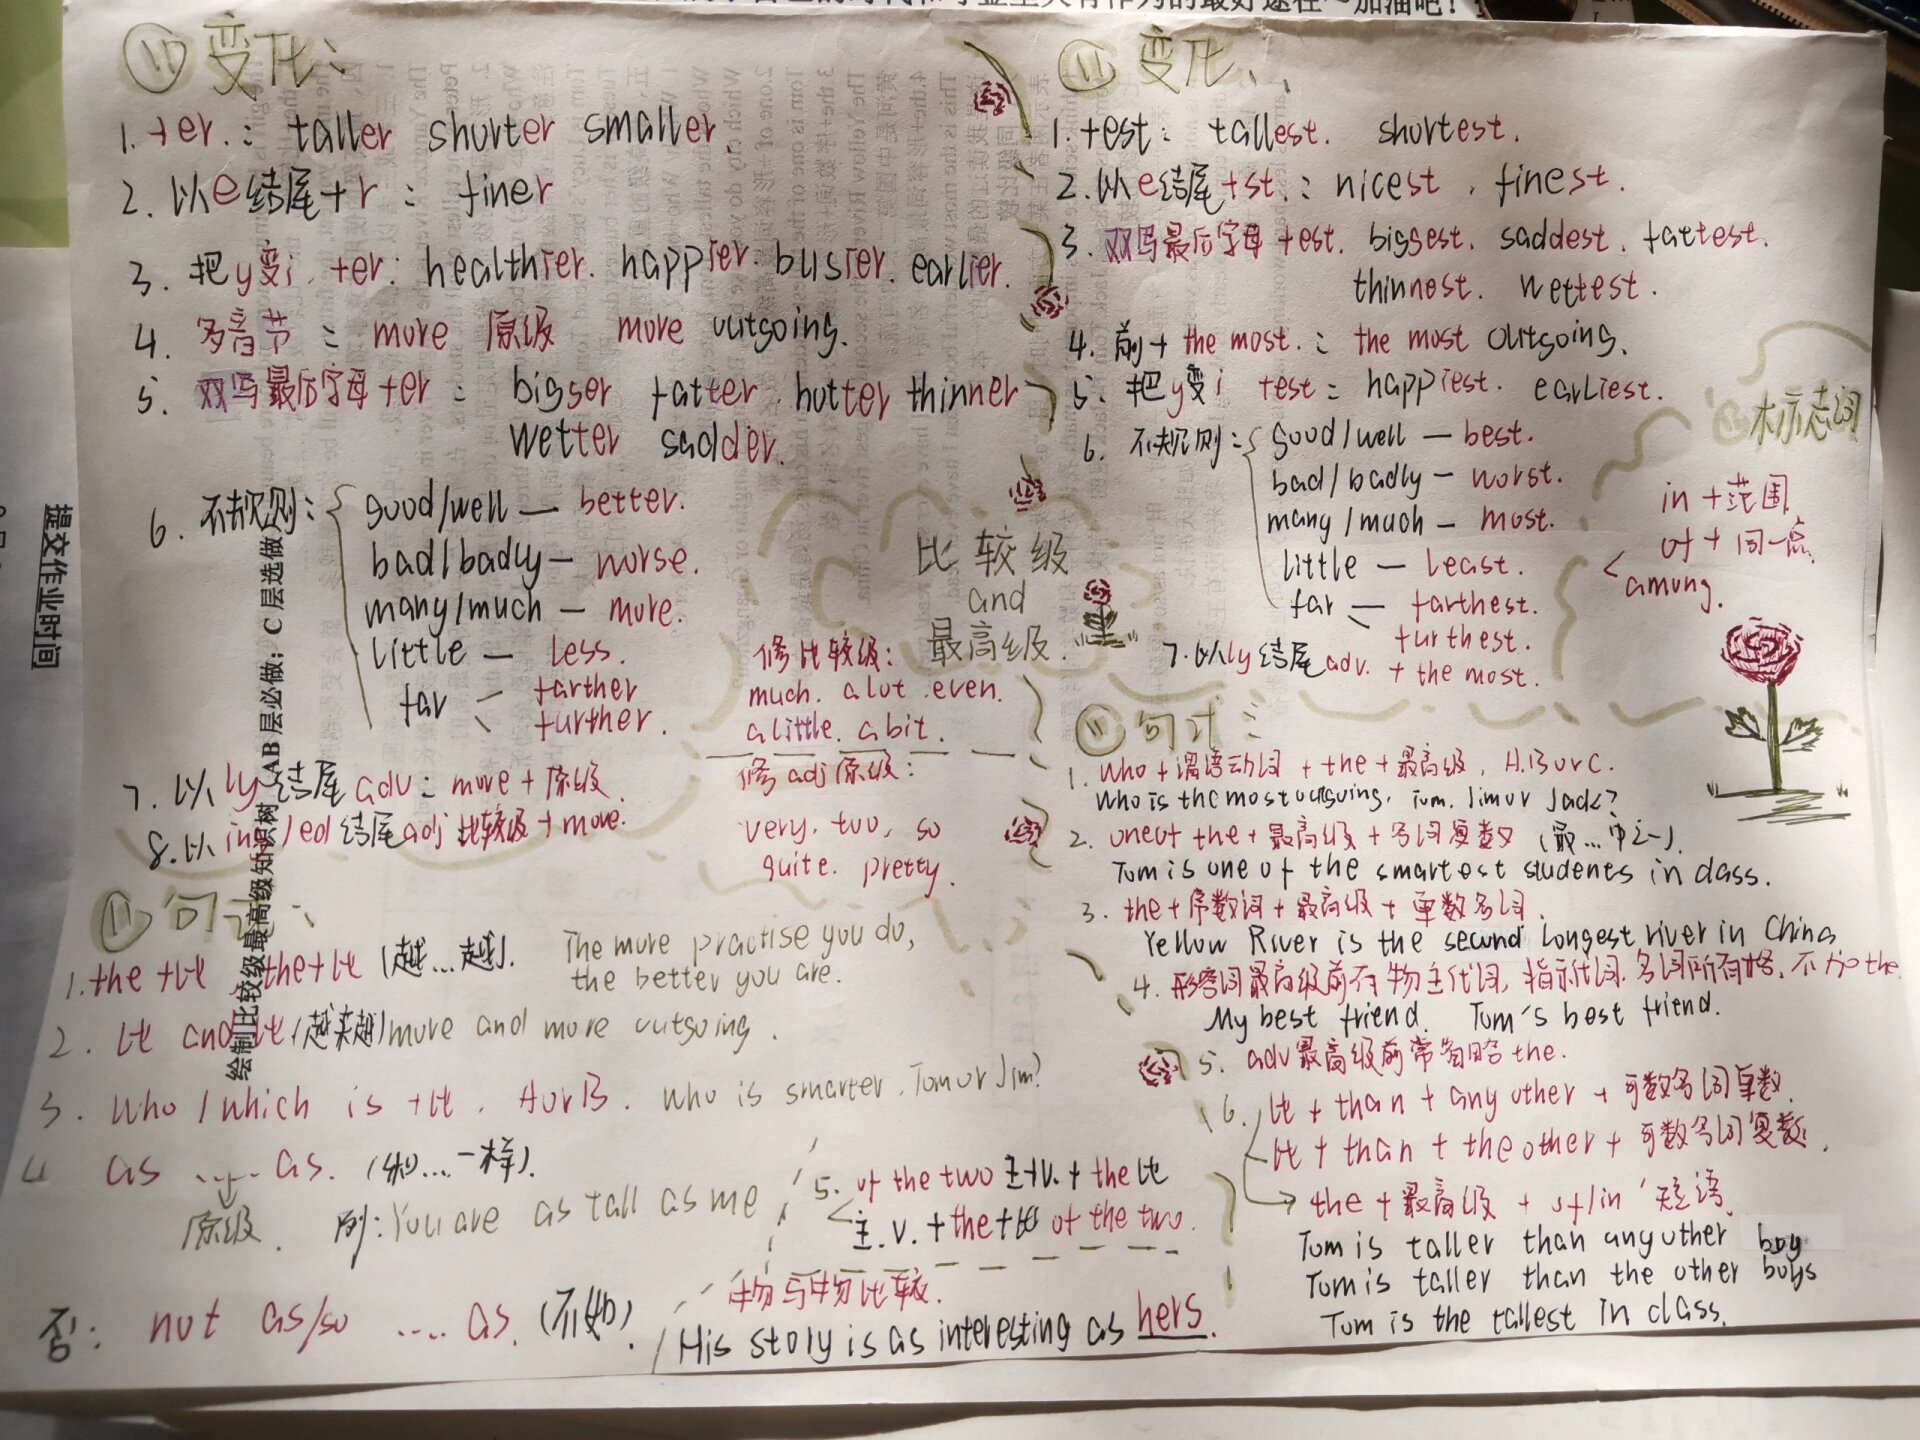 (1) 变化:
1. +er.: taller shorter smaller.
2. 以e结尾+r: finer
3. 把y变i, +er: healthier. happier. busier. earlier.
4. 多音节: more 原级 more outgoing.
5. 双写最后字母+er: bigger fatter hotter thinner
wetter sadder.
6. 不规则:
good/well — better.
bad/badly — worse.
many/much — more.
little — less.
far — farther
further.
7. 以ly结尾adv: more + 原级.
8. 以ing/ed结尾adj比较级+more.
修比较级:
much. a lot. even.
a little. a bit.
修adj原级:
very. too, so
quite. pretty.
比较级
and
最高级.
句式:
1. the+比, the+比 (越...越). The more practise you do,
the better you are.
2. 比 and 比(越来越) more and more outgoing.
3. Who/Which is +比, A or B. Who is smarter, Tom or Jim?
4 as .... as. (和...一样).
原级. 例: You are as tall as me
否: not as/so .... as. (不如).
5. of the two 主+v. + the 比
主.v. + the+比 of the two.
物与物比较.
His story is as interesting as hers.
变化:
1. +est: tallest. shortest.
2. 以e结尾+st: nicest, finest.
3. 双写最后字母+est. biggest. saddest. fattest.
thinnest. wettest.
4. 前+ the most.: the most outgoing.
5. 把y变i +est: happiest. earliest.
6. 不规则:
good/well — best.
bad/badly — worst.
many/much — most.
little — least.
far — farthest.
furthest.
7. 以ly结尾adv. + the most.
标志词
in + 范围
of + 同一点
among.
句式:
1. Who + 谓语动词 + the + 最高级, A.B or C.
Who is the most outgoing, Tom. Jim or Jack?
2. one of the + 最高级 + 名词复数 (最...中之一)
Tom is one of the smartest students in class.
3. the + 序数词 + 最高级 + 单数名词.
Yellow River is the second longest river in China
4. 形容词最高级前有物主代词, 指示代词. 名词所有格. 不加the.
My best friend. Tom's best friend.
5. adv最高级前常省略the.
6. 比 + than + any other + 可数名词单数.
比 + than + the other + 可数名词复数.
the + 最高级 + of/in 短语.
Tom is taller than any other boy
Tom is taller than the other boys
Tom is the tallest in class.
提交作业时间
绘制比较级最高级知识树 (AB层必做; C层选做)